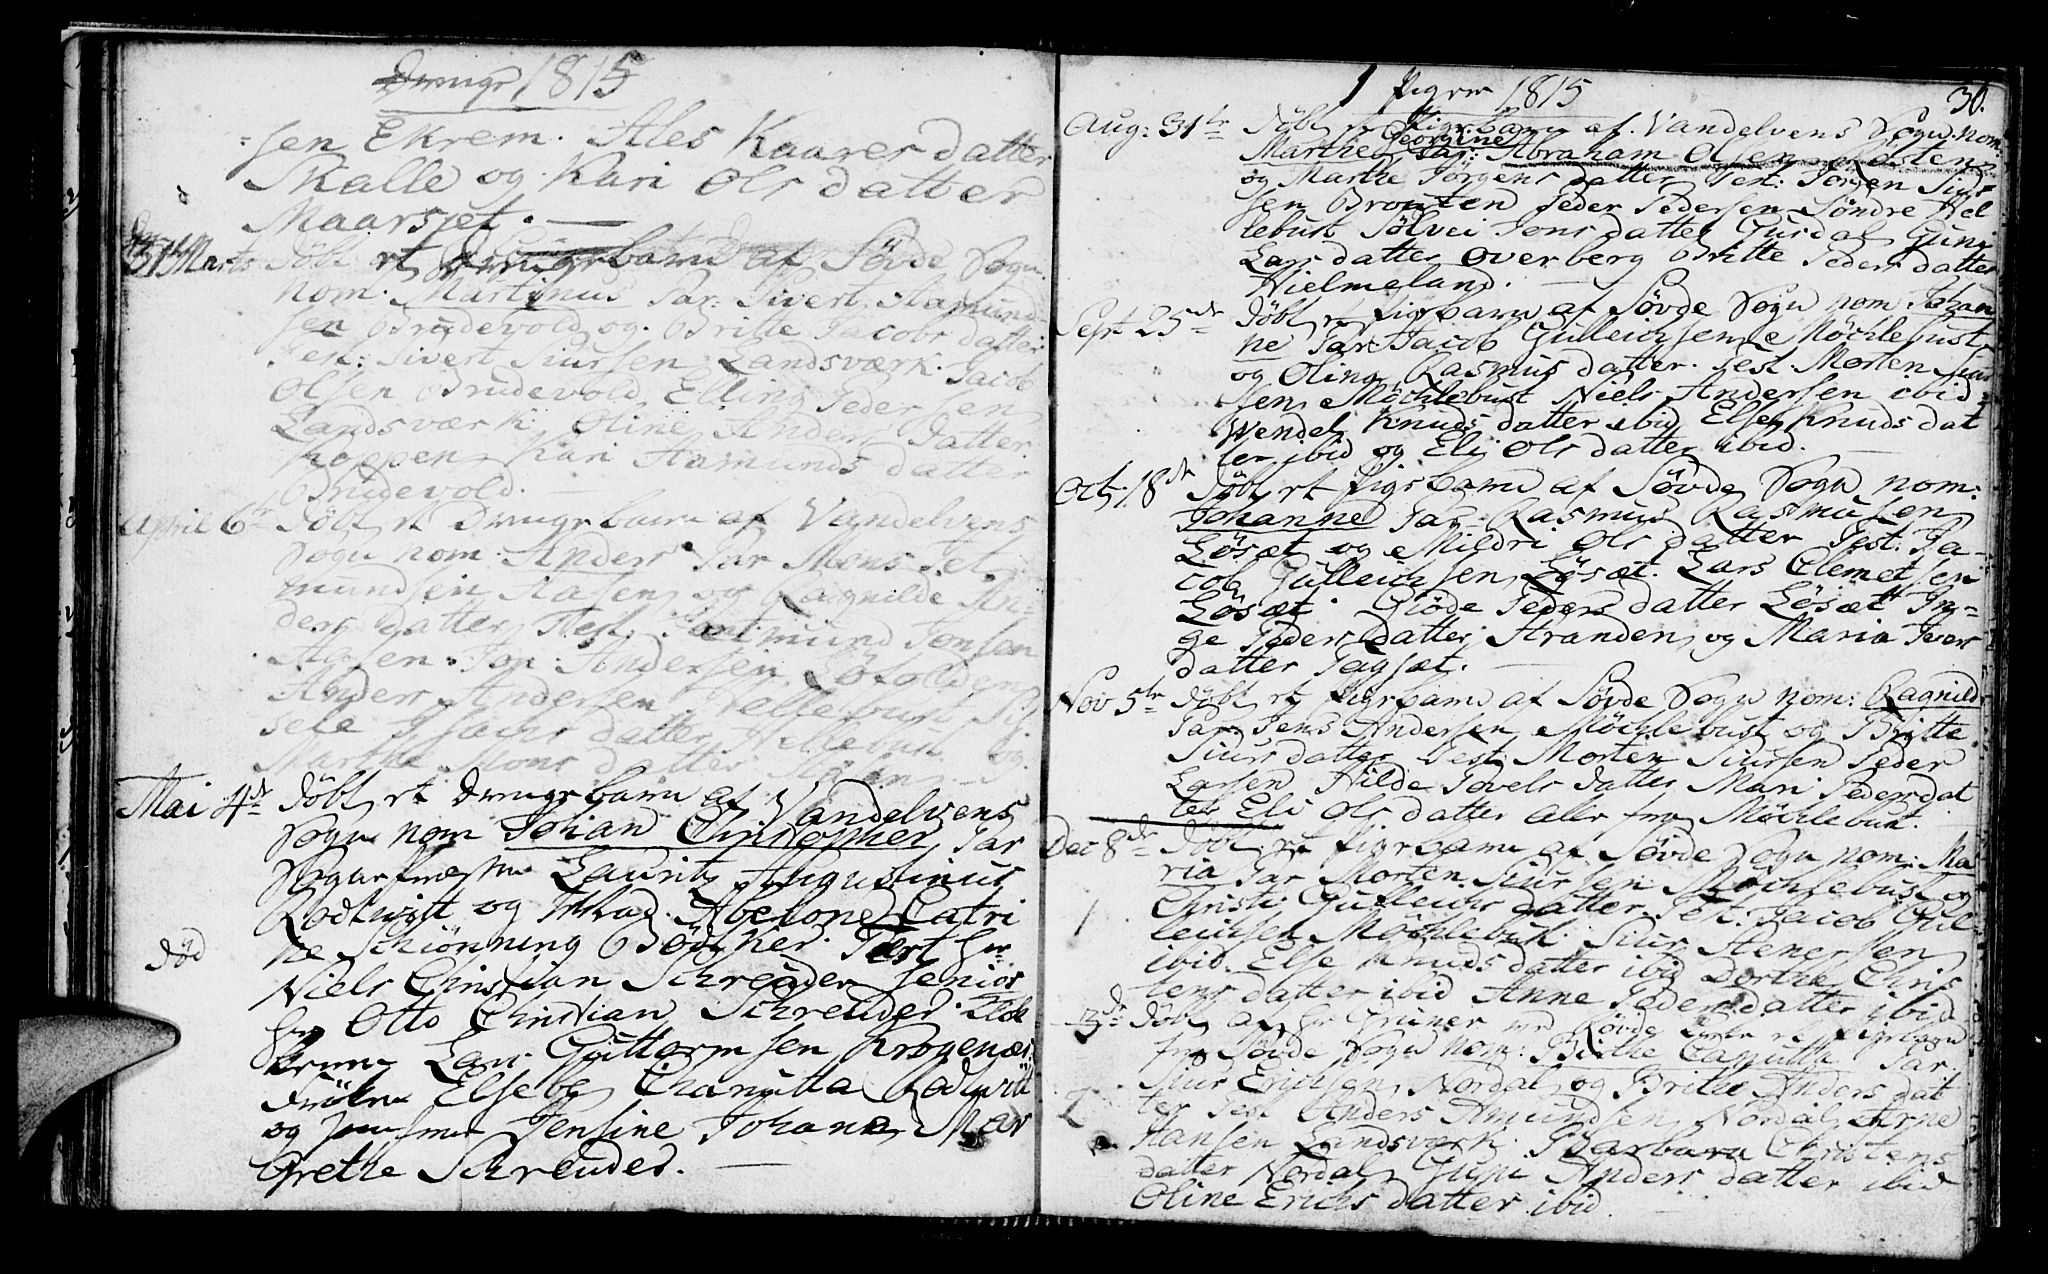 Drenge 1815
sen Ekrem. Ales Kaarer datter
Skalle og Kari Ols datter
Maarsæt.
31 Marts Döbt et Drengebarn af Sövde Sogn
nom. Martinus Par: Sivert Aamund
sen Brudevold og Britte Jacobs datter
Test: Sivert Siursen Landsværk. Jacob
Olsen Brudevold, Elling Peder sen
Landsværk. Oline Anders datter
Koppen, Kari Aamunds datter
Brudevold.
April 6te Döbt et Drengebarn af Vandelvens
Sogn nom: Anders Par Mons Jet
mundsen Aasen og Ragnilde An-
ders datter Test. Jonsen
Aasen. Jon Andersen
Anders Andersen Hellebust
sele datter Hellebust og
Marthe Mons datter Aasen.
Mai 4de Döbt et Drengebarn af Vandelvens
Sogn nom Johan Christopher Par
Sognepræsten Laurits Augustinus
Rodtwitt og Abelone Catri
ne Schiönning Bödtker. Test hr.
död
Niels Christian Schreuder Senior
hr Otto Christian Schreuder.
Lars Guttormsen Krogenæs.
Fröken Elsebe Charlotta Rodtwitt
og Jensine Johane Mar
Grethe Schreuder.
Piger 1815
30.
Aug: 31te Döbt et Pigebarn af Vandelvens Sogn nom:
Georgine
Marthe Par: Abraham Olsen
og Marthe Jörgens datter Test: Jörgen Siur
sen Brouten Peder Pedersen Söndre Hel
lebust Sölvei Jons datter Gusdal, Guni
Lars datter Overberg Britte Peders datter
Hielmeland.
Sept 25de Döbt et Pigebarn af Sövde Sogn nom Johan
ne Par Jacob Gulleichsen Möchlebust
og Oline Rasmus datter. Test. Morten Siur
sen Möchlebust Niels Andersen ibid
Wendel Knuds datter ibid Else Knuds dat
ter ibid og Eli Ols datter ibid.
Oct: 18de Döbt et Pigebarn af Sövde Sogn nom:
Johanne Par Rasmus Rasmusen
Lösæt og Mildri Ols datter Test: Ja-
cob Gulleichsen Lösæt. Lars Clemetsen
Lösæt. Giöde Peders datter Lösæt In-
ge Peders datter Stranden og Maria Iver
datter Sagsæt.
Nov 5te Döbt et Pigebarn af Sövde Sogn nom: Ragnilde
Par Jens Andersen Möchlebust og Britte
Siurs datter Test: Morten Siursen Peder
Larsen Hilde Povels datter Mari Peders dat
ter Eli Ols datter alle fra Möchlebust.
Dec 8de Döbt et Pigebarn af Sövde Sogn nom: Ma
ria Par Morten Siursen Möchlebust og
Christi Gulleichs datter Test: Jacob Gul
leichsen Möchlebust. Siur Stenersen
1
ibid. Else Knuds datter ibid Dorthe Chris
tens datter ibid Anne Peders datter ibid
3de Döbt af hr Grüner ved Rövde et Pigebarn
fra Sövde Sogn nom: Birthe Par
Siur Erichsen Nordal og Britte Anders dat
2
ter Test Anders Amundsen Nordal, Arne
Hansen Landsværk. Barbara Christens
datter Nordal, Guni Anders datter ibid
Oline Erichs datter ibid.